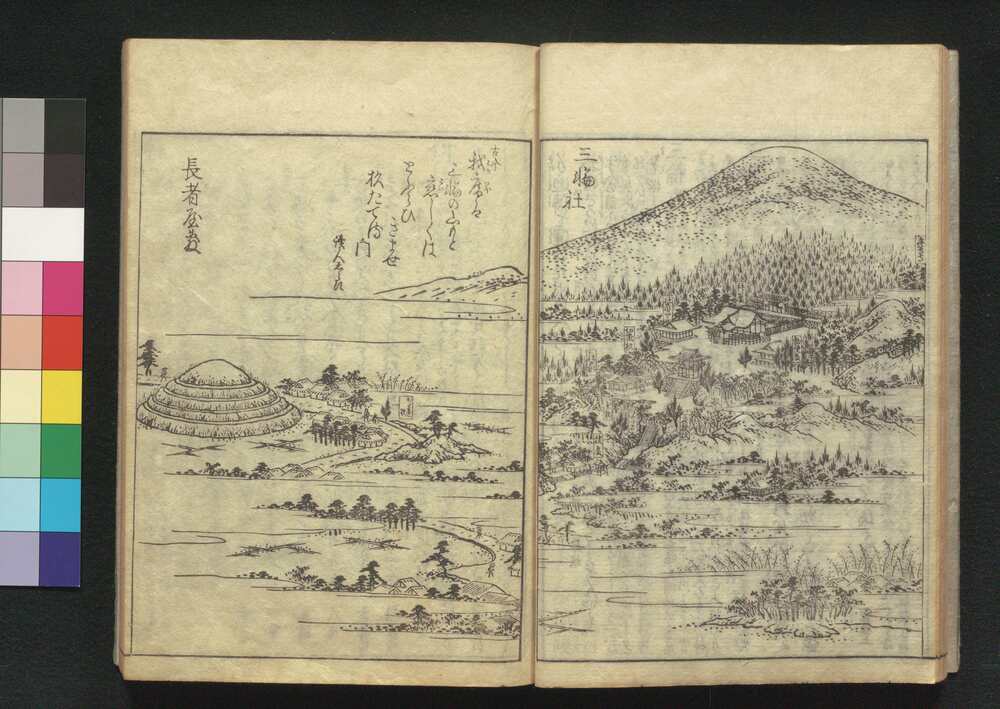 三輪社
古今
我庵は
三輪の山もと
恋しくは
とふらひ
きませ
杦たてる
門
長者屋敷